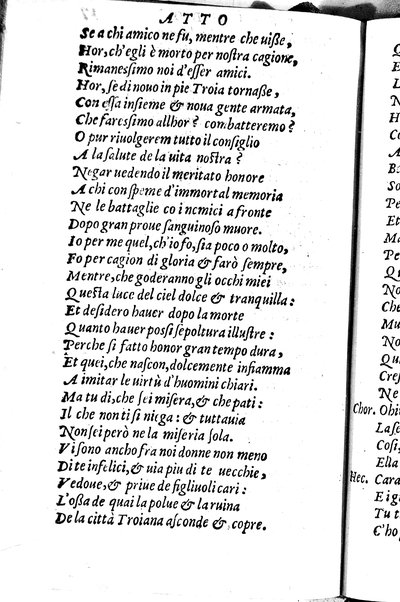 ATTO
Se a chi amico ne fu, mentre che uiße,
Hor, ch'egli è morto per nostra cagione,
Rimanessimo noi d'esser amici.
Hor, se di nouo in pie Troia tornaße,
Con essa insieme & noua gente armata,
Che faressimo allhor? combatteremo?
O pur riuolgerem tutto il consiglio
A la salute de la uita nostra?
Negar uedendo il meritato honore
A chi con speme d'immortal memoria
Ne le battaglie co i nemici a fronte
Dopo gran proue sanguinoso muore.
Io per me quel, ch'io fo, sia poco o molto,
Fo per cagion di gloria & farò sempre,
Mentre, che goderanno gli occhi miei
Questa luce del ciel dolce & tranquilla:
Et desidero hauer dopo la morte
Quanto hauer possi sepoltura illustre:
Perche si fatto honor gran tempo dura,
Et quei, che nascon, dolcemente infiamma
A imitar le uirtù d'huomini chiari.
Ma tu di, che sei misera, & che pati:
Il che non ti si niega: & tuttauia
Non sei però ne la miseria sola.
Vi sono ancho fra noi donne non meno
Di te infelici, & uia piu di te uecchie,
Vedoue, & priue de figliuoli cari:
L'oßa de quai la polue & la ruina
De la città Troiana asconde & copre.
Chor.
Hec.